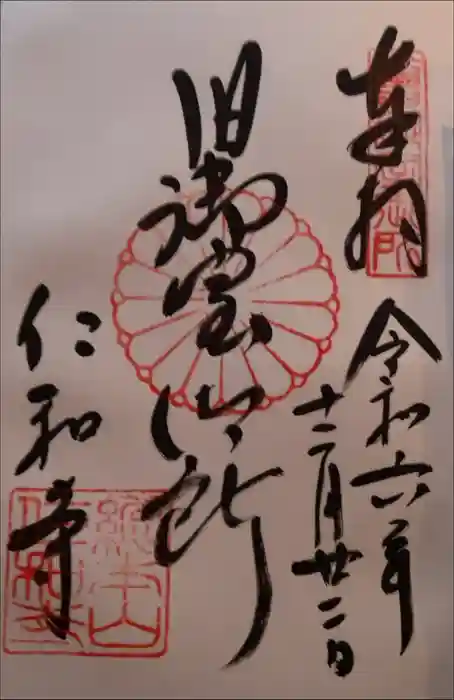 奉拝
令和六年
十二月廿二日
旧御室御所
仁和寺
総本山
仁和寺